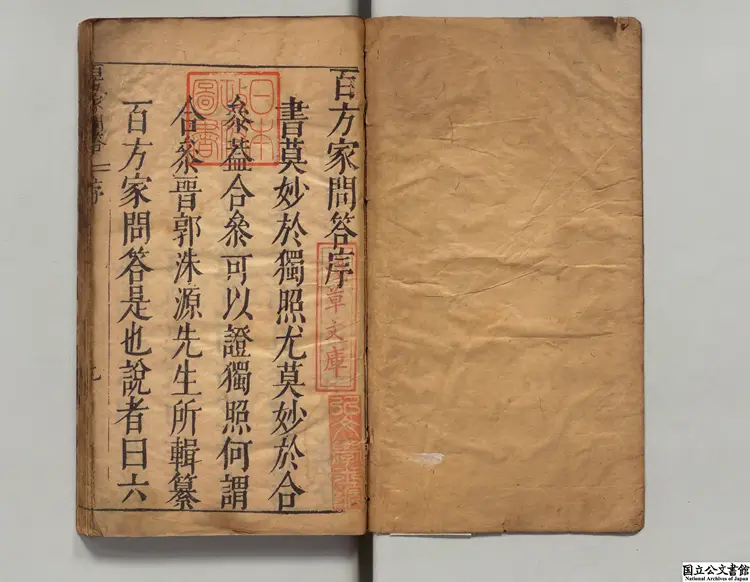 百方家問答序
書莫妙於獨照尤莫妙於合
叅葢合叅可以證獨照何謂
合叅晋郭洙源先生所輯纂
百方家問答是也說者曰六
日本
政
圖書
草文庫
國立公文書館
National Archives of Japan